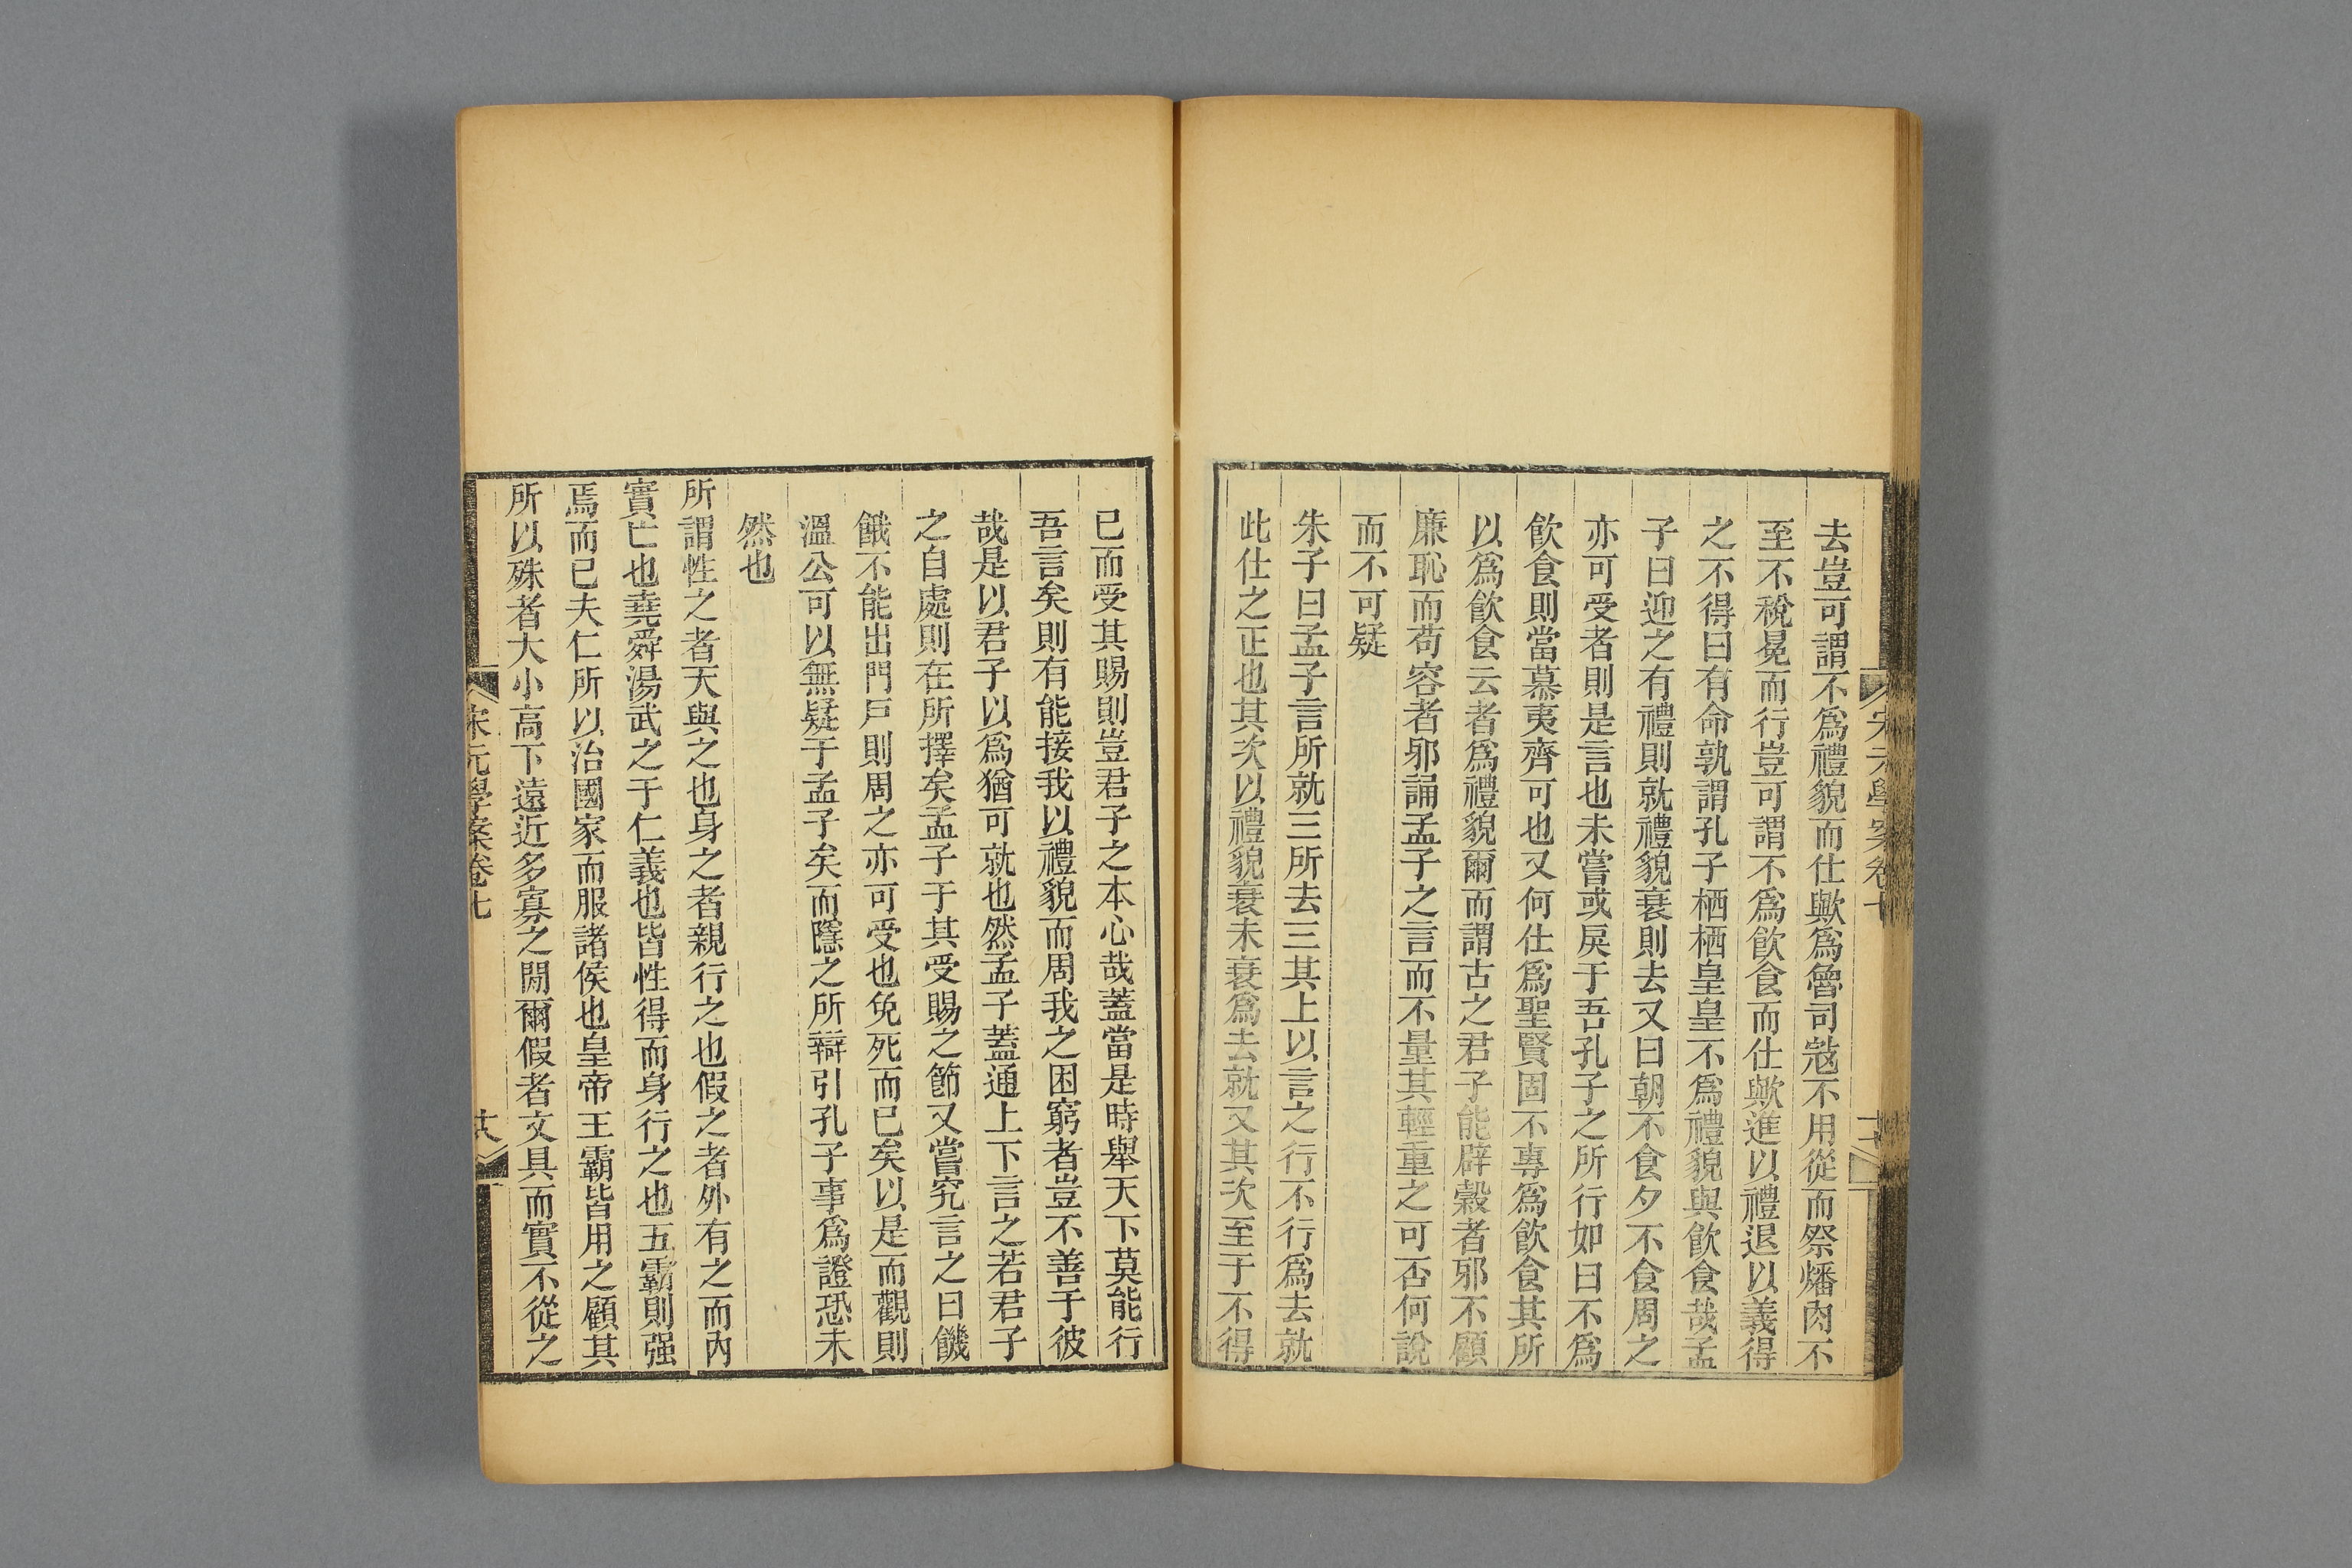 去豈可謂不爲禮貌而仕歟爲魯司寇不用從而祭燔肉不
至不稅冕而行豈可謂不爲飲食而仕歟進以禮退以義得
之不得曰有命孰謂孔子栖栖皇皇不爲禮貌與飲食哉孟
子曰迎之有禮則就禮貌衰則去又曰朝不食夕不食周之
亦可受者則是言也未嘗或戾于吾孔子之所行如曰不爲
飲食則當慕夷齊可也又何仕爲聖賢固不專爲飲食其所
以爲飲食云者爲禮貌爾而謂古之君子能辟穀者邪不顧
廉恥而苟容者邪誦孟子之言而不量其輕重之可否何說
而不可疑
朱子曰孟子言所就三所去三其上以言之行不行爲去就
此仕之正也其次以禮貌衰未衰爲去就又其次至于不得
已而受其賜則豈君子之本心哉蓋當是時舉天下莫能行
吾言矣則有能接我以禮貌而周我之困窮者豈不善于彼
哉是以君子以爲猶可就也然孟子蓋通上下言之若君子
之自處則在所擇矣孟子于其受賜之節又嘗究言之曰饑
餓不能出門戸則周之亦可受也免死而已矣以是而觀則
溫公可以無疑于孟子矣而隱之所辯引孔子事爲證恐未
然也
所謂性之者天與之也身之者親行之也假之者外有之而內
實亡也堯舜湯武之于仁義也皆性得而身行之也五霸則强
焉而已夫仁所以治國家而服諸侯也皇帝王霸皆用之顧其
所以殊者大小高下遠近多寡之閒爾假者文具而實不從之
宋元學案卷七